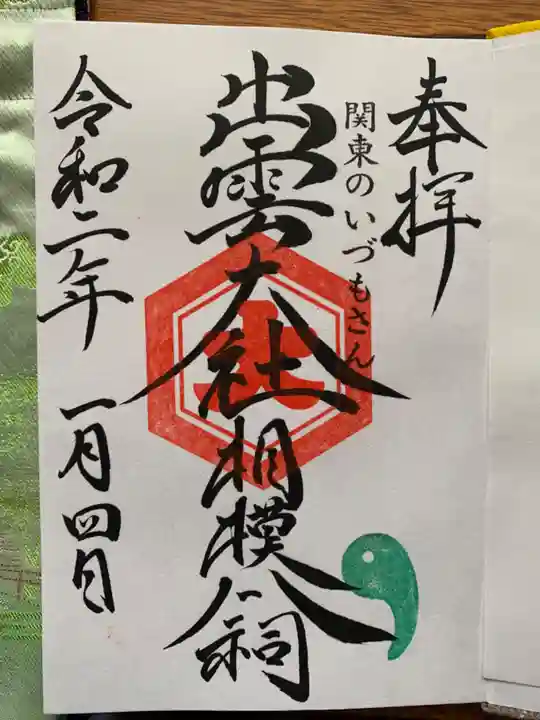 奉拝
関東のいづもさん
出雲大社相模分祠
大
令和二年 一月四日